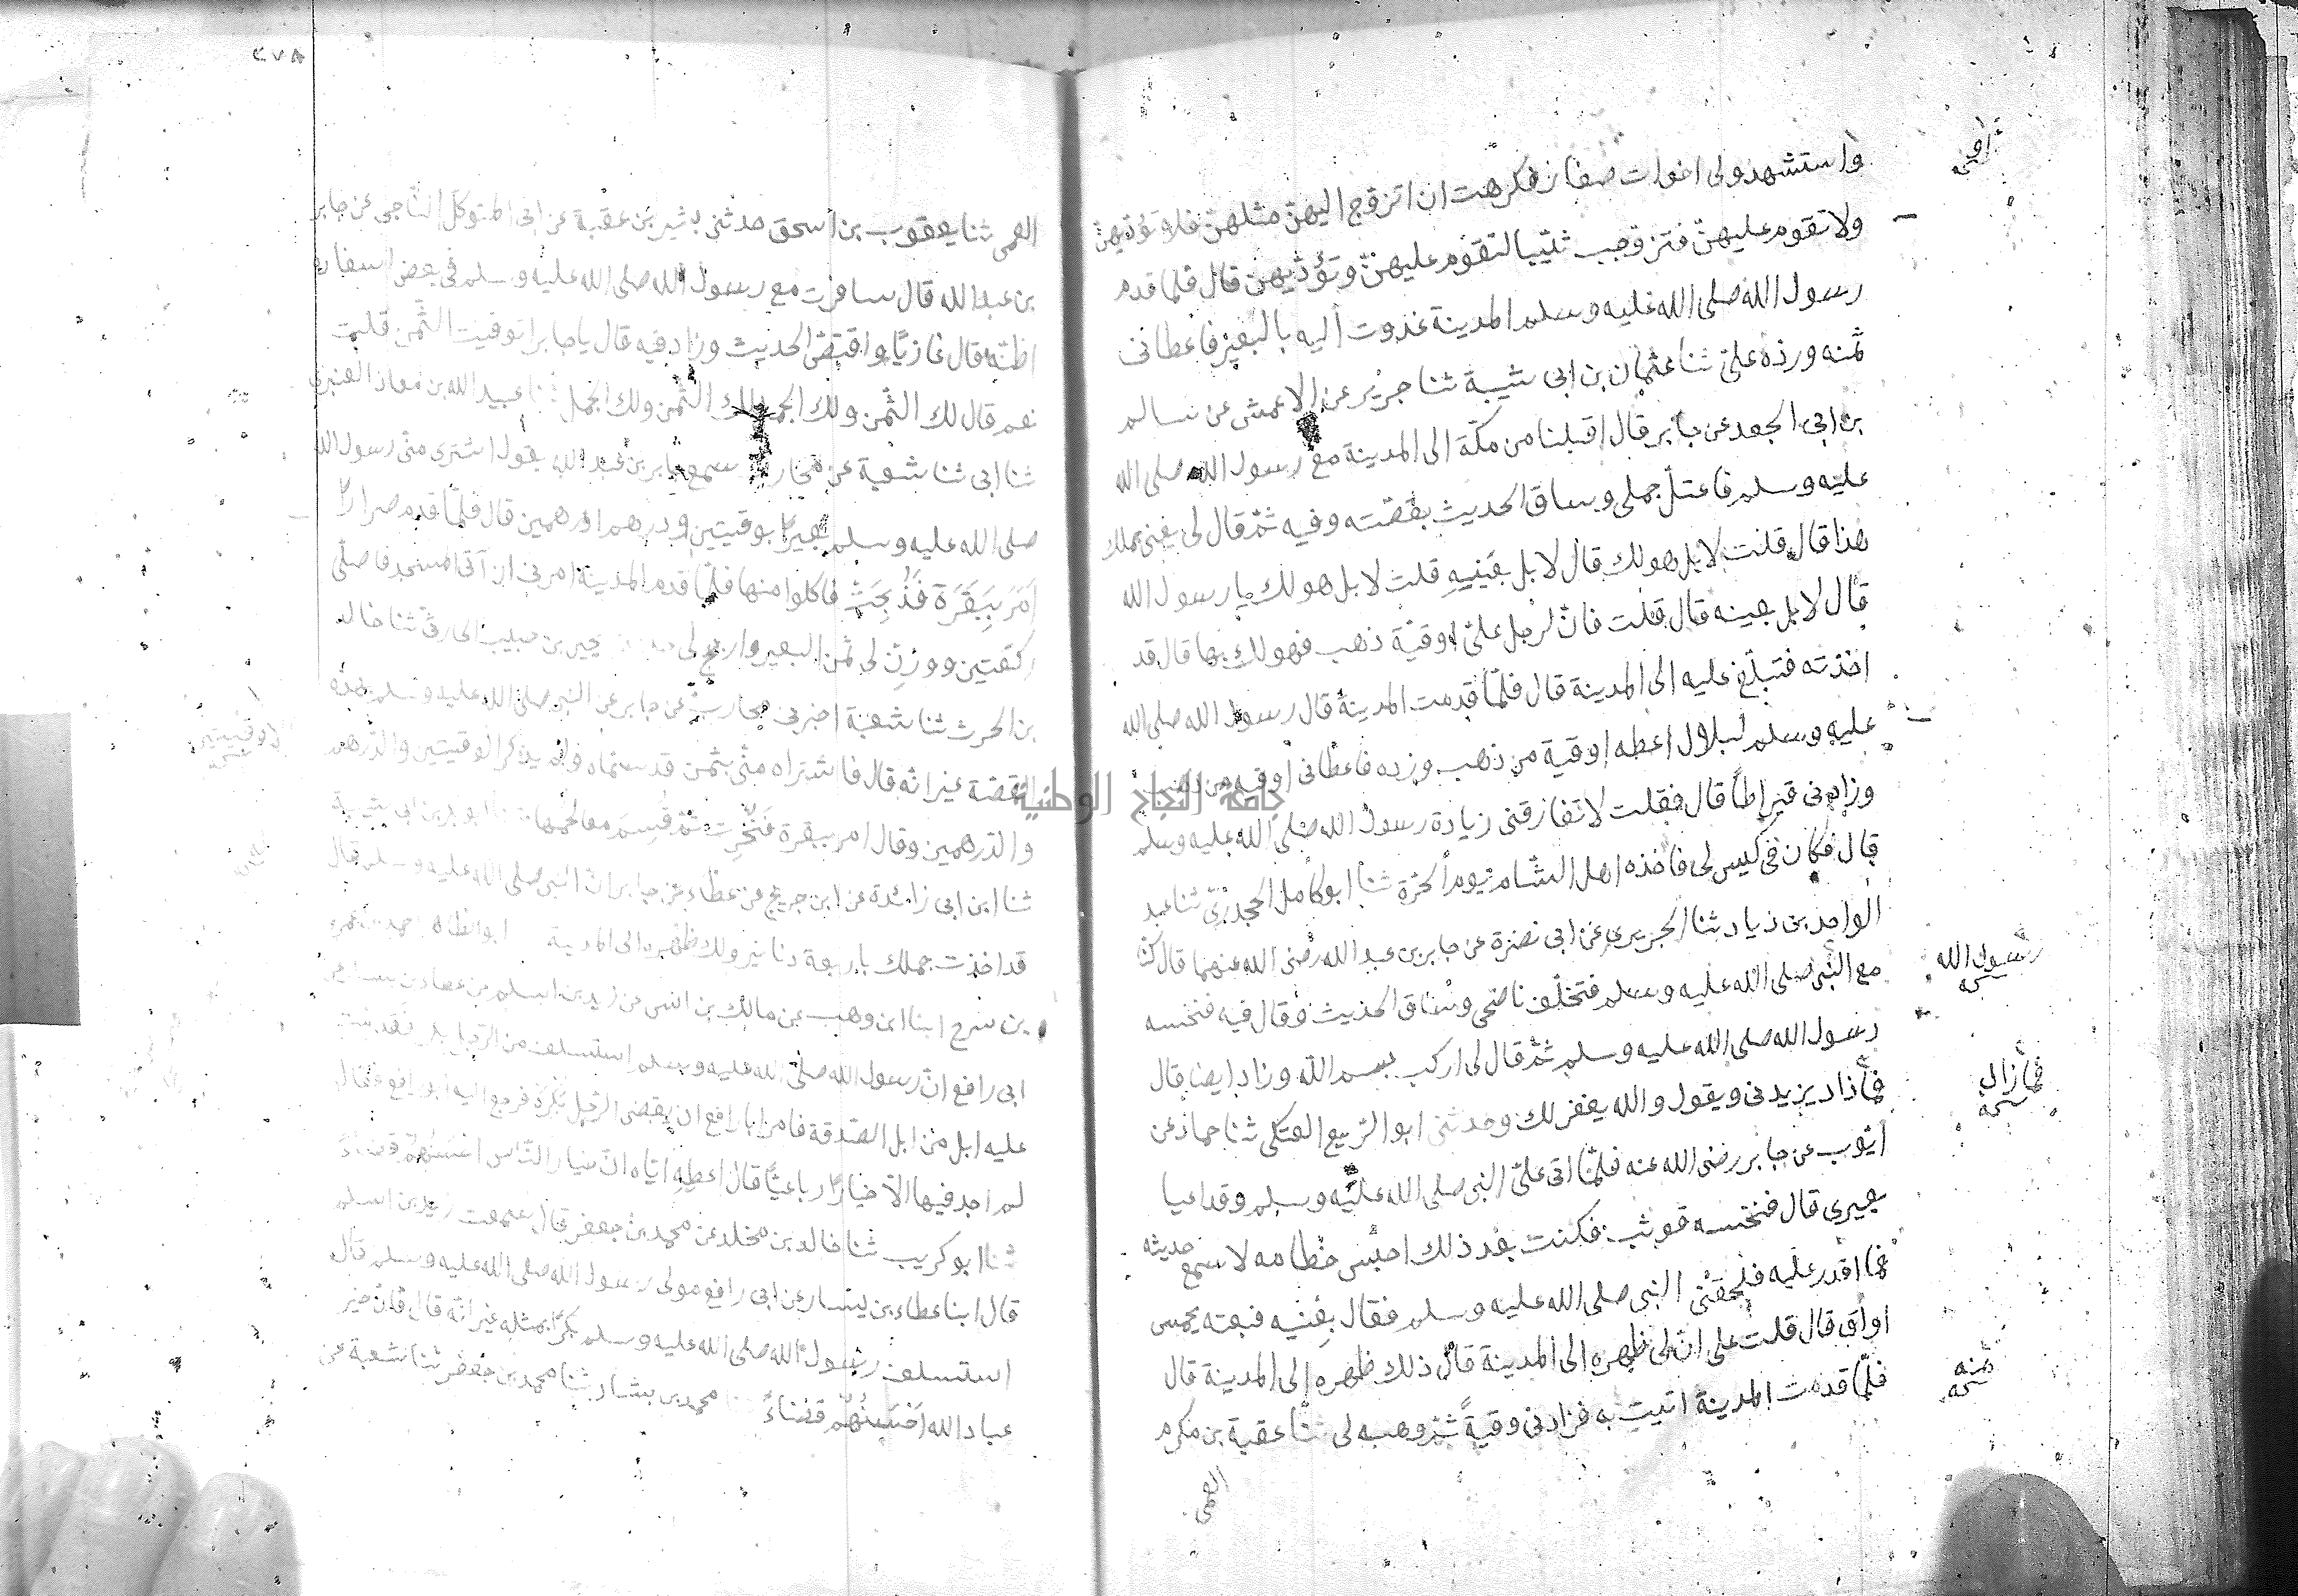 واستشهد ولى اخوات صغار فكرهت ان اتزوج اليهن مثلهن فلا تؤدبهن
ولا تقوم عليهن فتزوجت ثيبا لتقوم عليهن وتؤدبهن قال فلما قدم
رسول الله صلى الله عليه وسلم المدينة غدوت اليه بالبعير فاعطانى
ثمنه ورده على ثنا عثمان بن ابى شيبة ثنا جرير عن الاعمش عن سالم
بن ابى الجعد عن جابر قال اقبلنا من مكة الى المدينة مع رسول الله صلى الله
عليه وسلم فاعتل جملى وساق الحديث بقصته وفيه ثم قال لى بعنى جملك
هذا قال قلت لا بل هو لك قال لا بل بعنيه قلت لا بل هو لك يا رسول الله
قال لا بل بعينه قال قلت فان لرجل على اوقية ذهب فهو لك بها قال قد
اخذته فتبلغ عليه الى المدينة قال فلما قدمت المدينة قال رسول الله صلى الله
عليه وسلم لبلال اعطه اوقية من ذهب وزده فاعطانى اوقية من ذهب
وزادنى قيراطا قال فقلت لا تفارقنى زيادة رسول الله صلى الله عليه وسلم
قال فكان فى كيس لى فاخذه اهل الشام يوم الحرة ثنا ابو كامل الجحدرى ثنا عبد
الواحد بن زياد ثنا الجريرى عن ابى نضرة عن جابر بن عبد الله رضى الله عنهما قال كنا
مع النبى صلى الله عليه وسلم فتخلف ناضحى وساق الحديث وقال فيه فنخسه
رسول الله صلى الله عليه وسلم ثم قال لى اركب بسم الله وزاد ايضا قال
فما زاد يزيدنى ويقول والله يغفر لك وحدثنى ابو الربيع العتكى ثنا حماد عن
ايوب عن جابر رضى الله عنه فلما اتى على النبى صلى الله عليه وسلم وقد اعيا
بعيرى قال فنخسه فوثب فكنت بعد ذلك احبس خطامه لاسمع حديثه
فما اقدر عليه فلحقنى النبى صلى الله عليه وسلم فقال بعنيه فبعته بخمس
اواق قال قلت على ان لى ظهره الى المدينة قال ذلك ظهره الى المدينة قال
فلما قدمت المدينة اتيت به فزادنى وقية ثم وهبه لى ثنا عقبة بن مكرم
العمى
رسول الله
نسخه
فما زال
نسخه
ثمنه
نسخه
جامعة النجاح الوطنية
٢٧٨
العمى ثنا يعقوب بن اسحق حدثنى بشير بن عقبة عن ابى المتوكل الناجى عن جابر
بن عبد الله قال سافرت مع رسول الله صلى الله عليه وسلم فى بعض اسفاره
اظنه قال غازيا واقتص الحديث وزاد فيه قال يا جابر اتوفيت الثمن قلت
نعم قال لك الثمن ولك الجمل لك الثمن ولك الجمل ثنا عبيد الله بن معاذ العنبرى
ثنا ابى ثنا شعبة عن محارب سمع جابر بن عبد الله يقول اشترى منى رسول الله
صلى الله عليه وسلم بعيرا بوقيتين ودرهم او درهمين قال فلما قدم صرارا
امر ببقرة فذبحت فاكلوا منها فلما قدم المدينة امرنى ان آتى المسجد فاصلى
ركعتين ووزن لى ثمن البعير وارجح لى يحيى بن حبيب الحارثى ثنا خالد
بن الحرث ثنا شعبة اخبرنى محارب عن جابر عن النبى صلى الله عليه وسلم بهذه
القصة غير انه قال فاشتراه منى بثمن قد سماه ولم يذكر الوقيتين والدرهم
والدرهمين وقال امر ببقرة فنحرت ثم قسم لحمها ابو بكر بن ابى شيبة
ثنا ابن ابى زائدة عن ابن جريج عن عطاء عن جابر ان النبى صلى الله عليه وسلم قال
قد اخذت جملك باربعة دنانير ولك ظهره الى المدينة ابو الطاهر احمد بن عمرو
بن سرح ابنا ابن وهب عن مالك بن انس عن زيد بن اسلم عن عطاء بن يسار عن
ابى رافع ان رسول الله صلى الله عليه وسلم استسلف من الرجل بكرا فقدمت
عليه ابل من ابل الصدقة فامر ابا رافع ان يقضى الرجل بكره فرجع اليه ابو رافع فقال
لم اجد فيها الا خيارا رباعيا قال اعطه اياه ان خيار الناس احسنهم قضاء
ثنا ابو كريب ثنا خالد بن مخلد عن محمد بن جعفر قال سمعت زيد بن اسلم
قال ابنا عطاء بن يسار عن ابى رافع مولى رسول الله صلى الله عليه وسلم قال
استسلف رسول الله صلى الله عليه وسلم بكرا بمثله غير انه قال فان خير
عباد الله احسنهم قضاء محمد بن بشار ثنا محمد بن جعفر ثنا شعبة عن